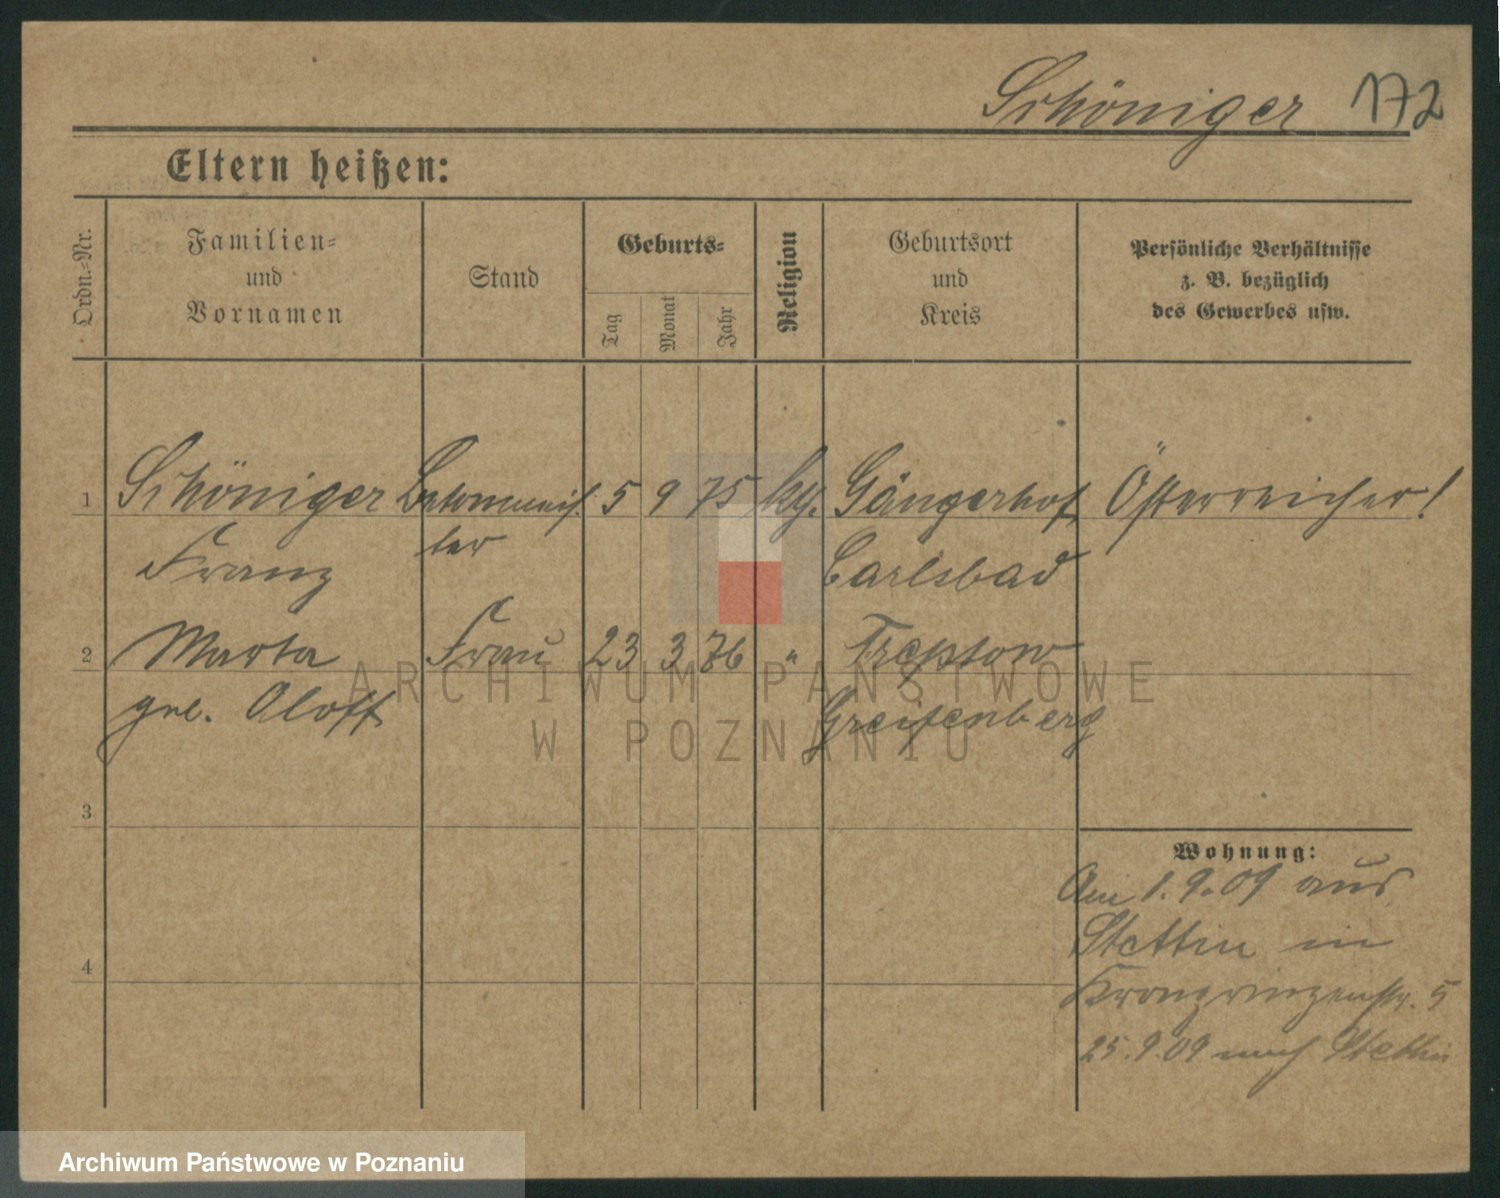 Schöniger 172
Eltern heißen:
Ordn.-Nr.
Familien-
und
Vornamen
Stand
Geburts-
Tag
Monat
Jahr
Religion
Geburtsort
und
Kreis
Persönliche Verhältnisse
z. B. bezüglich
des Gewerbes usw.
1 Schöniger 5 9 75 Gängerhof Österreicher!
ter
Franz Carlsbad
2 Marta Frau 23 3 76 " Treptow
geb. Aloff Greifenberg
3
4
Wohnung:
Am 1.9.09 aus
Stettin in
Kronprinzenstr. 5
25.9.09 nach Stettin
ARCHIWUM PAŃSTWOWE
W POZNANIU
Archiwum Państwowe w Poznaniu